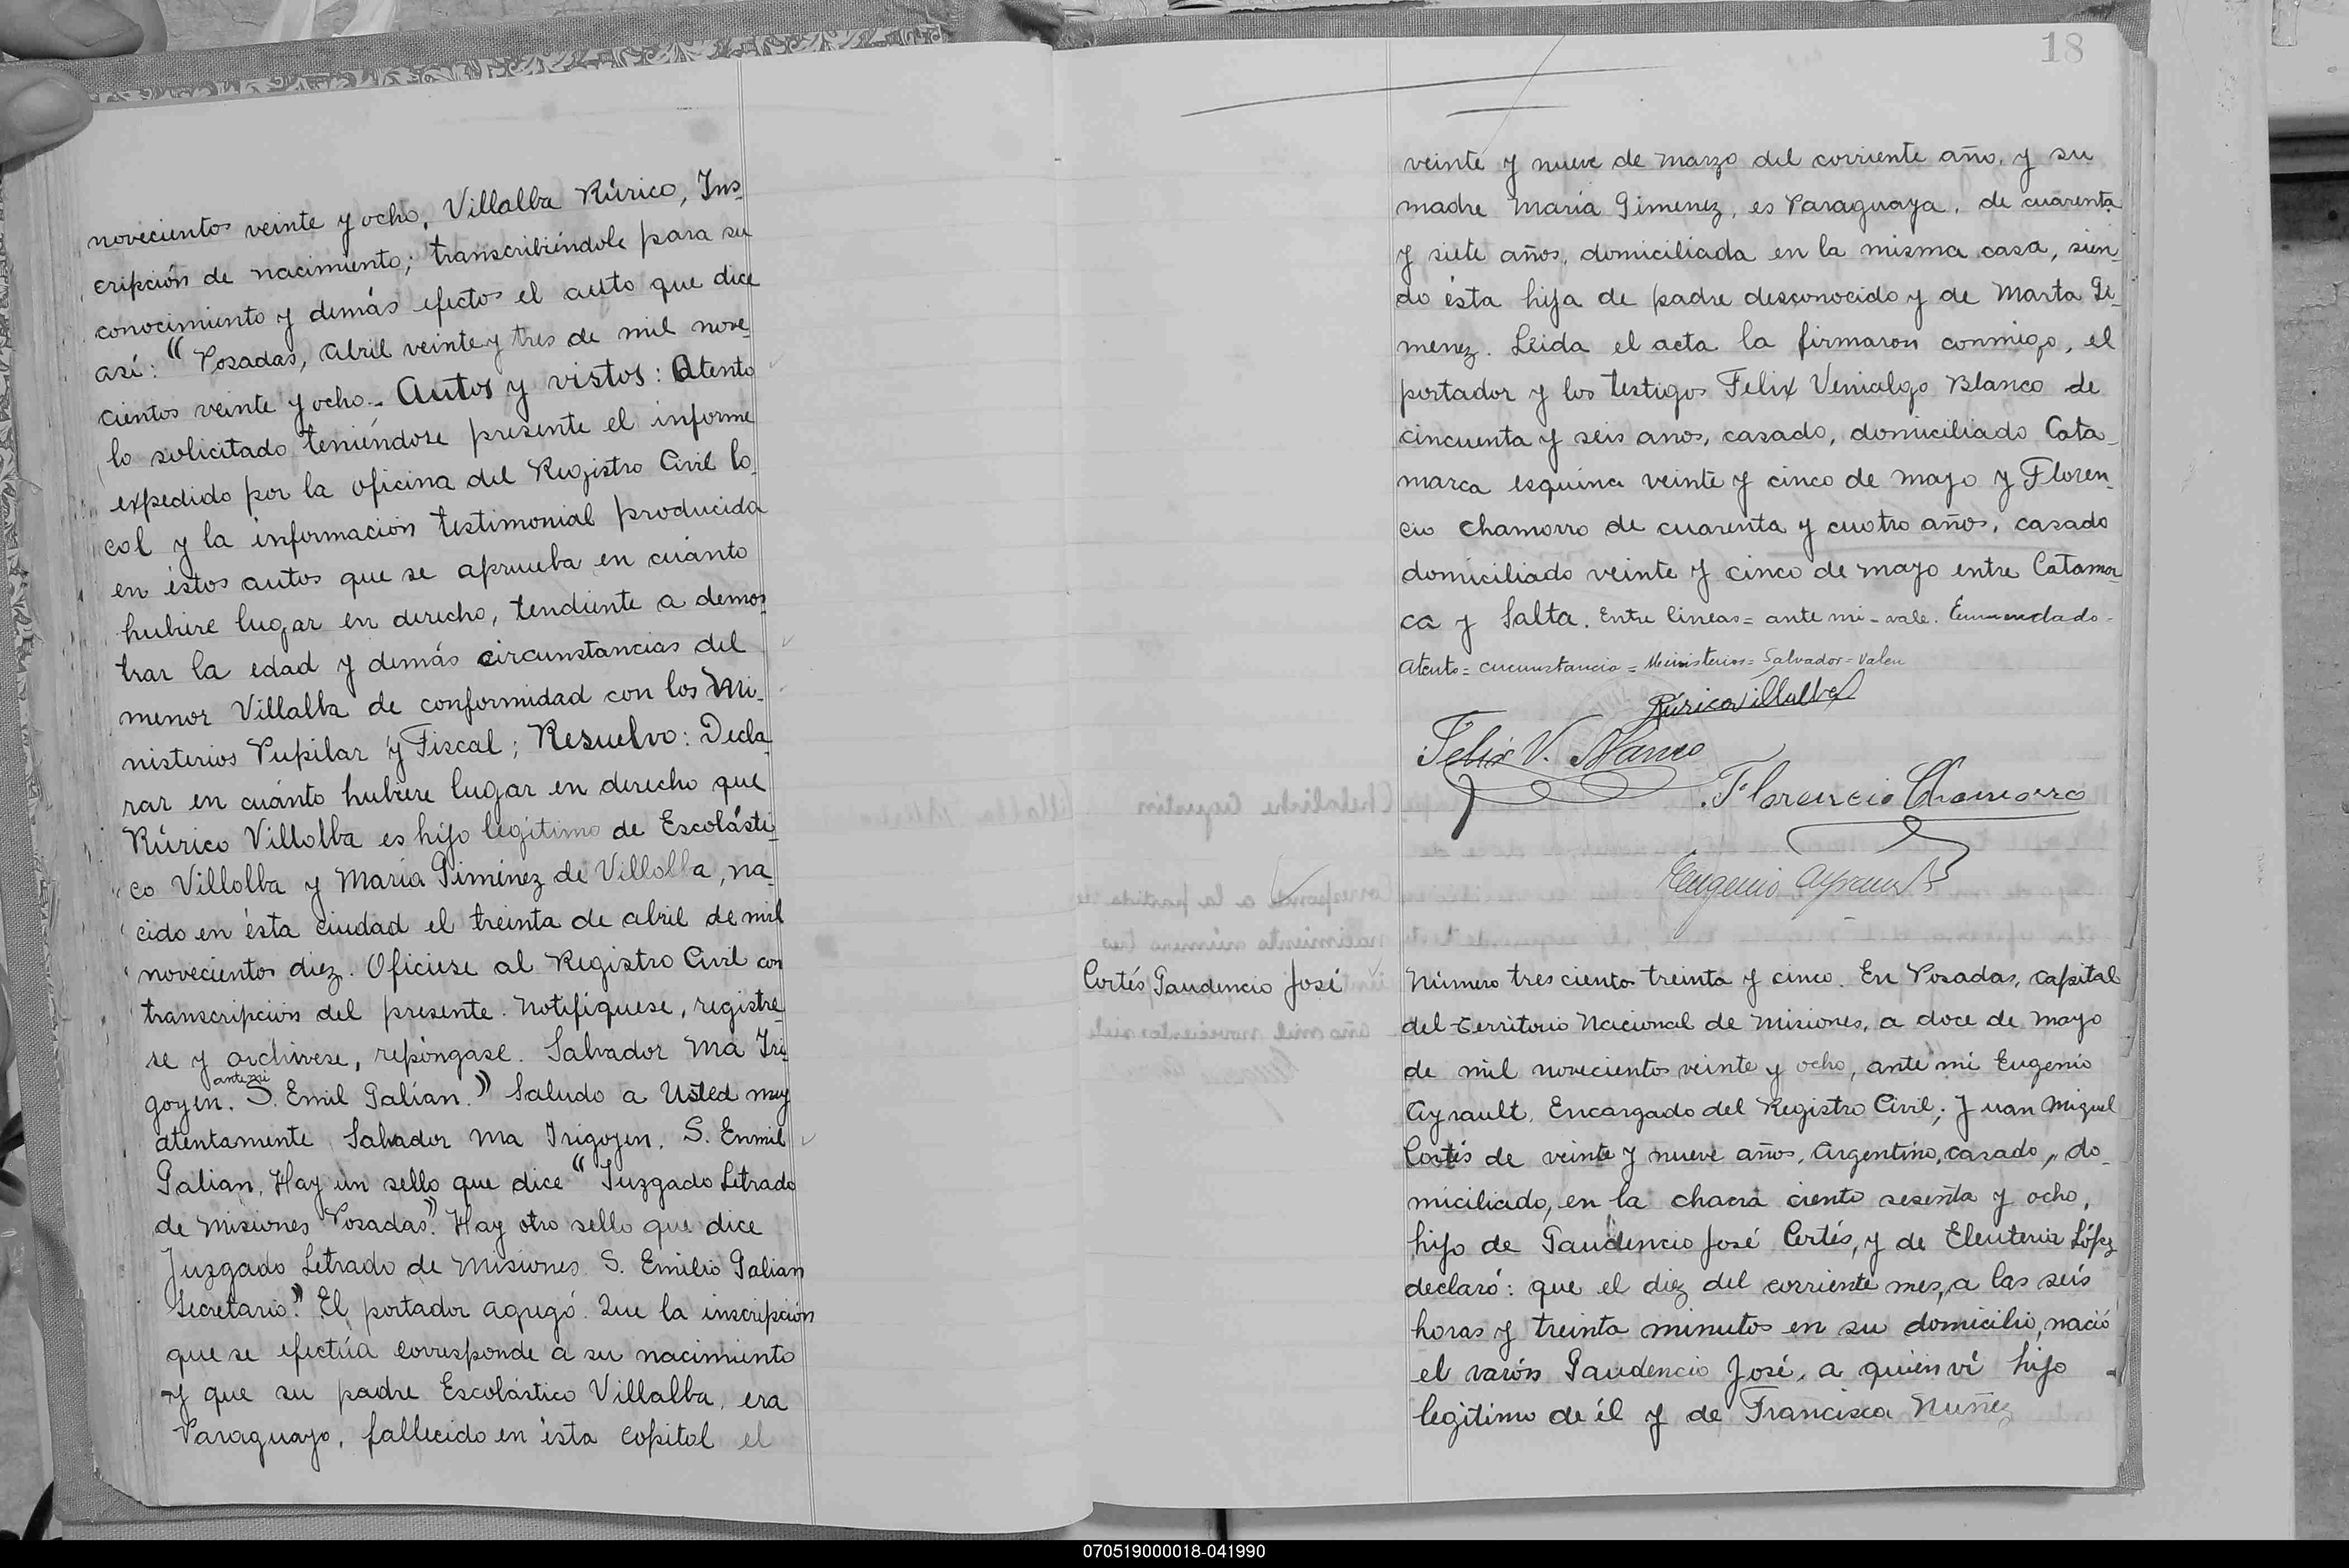 novecientos veinte y ocho, Villalba Rúrico, Ins-
cripción de nacimiento; transcribiéndole para su
conocimiento y demás efectos el auto que dice
así: “ Posadas, Abril veinte y tres de mil nove-
cientos veinte y ocho.- Autos y vistos: Atento
lo solicitado teniéndose presente el informe
expedido por la oficina del Registro Civil lo-
cal y la información testimonial producida
en éstos autos que se aprueba en cuánto
hubire lugar en derecho, tendiente a demos-
trar la edad y demás circunstancias del
menor Villalba de conformidad con los Mi-
nisterios Pupilar y Fiscal; Resuelvo: Decla-
rar en cuánto hubiere lugar en derecho que
Rúrico Villalba es hijo legítimo de Escolásti-
co Villalba y María Giménez de Villalba, na-
cido en ésta ciudad el treinta de abril de mil
novecientos diez. Oficiese al Registro Civil con
transcripción del presente. Notifiquese, registre-
se y archivese, repóngase. Salvador Ma Iri-
ante mi
goyen. S. Emil Galían.” Saludo a Usted muy
atentamente Salvador Ma Irigoyen. S. Enmil
Galian. Hay un sello que dice “ Juzgado Letrado
de Misiones Posadas”. Hay otro sello que dice
Juzgado Letrado de Misiones S. Emilio Galian
Secretario.” El portador agregó. Que la inscripción
que se efectúa corresponde a su nacimiento
y que su padre Escolástico Villalba, era
Paraguayo, fallecido en ésta capital el
18
veinte y nueve de marzo del corriente año, y su
madre María Gimenez, es Paraguaya, de cuarenta
y siete años, domiciliada en la misma casa, sien-
do ésta hija de padre desconocido y de Marta Gi-
menez. Leida el acta la firmaron conmigo, el
portador y los testigos Felix Venialgo Blanco de
cincuenta y seis anos, casado, domiciliado Cata-
marca esquina veinte y cinco de mayo y Floren-
cio Chamorro de cuarenta y cuatro años, casado
domiciliado veinte y cinco de mayo entre Catamar
ca y Salta. Entre lineas= ante mi - vale. Enmendado-
Atento= circunstancia= Ministerios= Salvador- Valen
Rúrico Villalba
Felix V. Blanco
Florencio Chamorro
Eugenio Ayrault
Cortés Gaudencio José
Número tres ciento treinta y cinco. En Posadas, capital
del territorio Nacional de Misiones, a doce de mayo
de mil novecientos veinte y ocho, ante mi Eugenio
Ayrault, Encargado del Registro Civil; Juan Miguel
Cortés de veinte y nueve años, Argentino, casado, do-
miciliado, en la chacra ciento sesenta y ocho,
hijo de Gaudencio José Cortés, y de Eleuteria López
declaró: que el diez del corriente mes, a las seis
horas y treinta minutos en su domicilio, nació
el varón Gaudencio José, a quien ví hijo
legítimo de él y de Francisca Nuñez
070519000018-041990